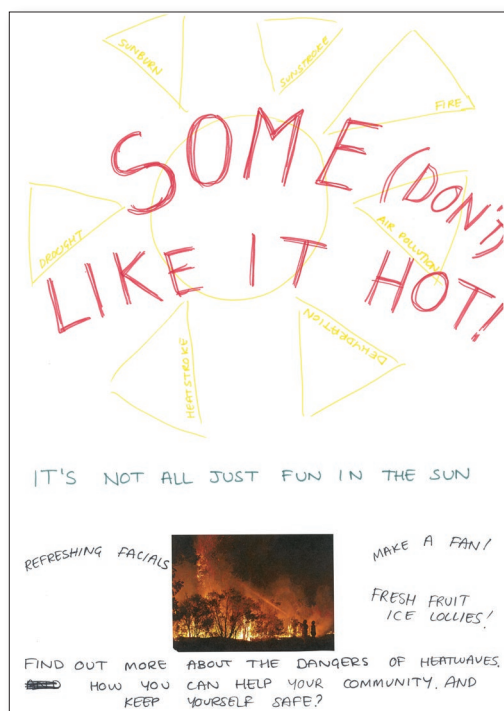 SUNBURN
SUNSTROKE
FIRE
SOME (DON'T)
AIR POLLUTION
DROUGHT
LIKE IT HOT!
HEATSTROKE
DEHYDRATION
IT'S NOT ALL JUST FUN IN THE SUN
REFRESHING FACIALS
MAKE A FAN!
FRESH FRUIT
ICE LOLLIES!
FIND OUT MORE ABOUT THE DANGERS OF HEATWAVES.
HOW YOU CAN HELP YOUR COMMUNITY. AND
KEEP YOURSELF SAFE?